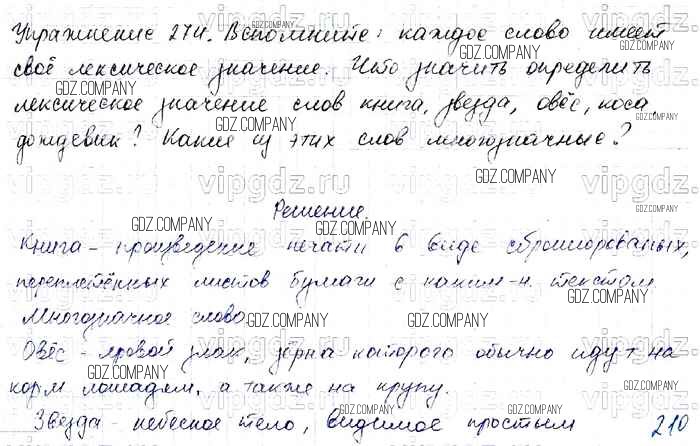 Упражнение 274. Вспомните: каждое слово имеет
своё лексическое значение. Что значить определить
лексическое значение слов книга, звезда, овёс, коса,
дождевик? Какие из этих слов многозначные?
Решение.
Книга - произведение печати в виде сброшюрованых,
переплетённых листов бумаги с каким-н. текстом.
Многозначное слово.
Овёс - яровой злак, зёрна которого обычно идут на
корм лошадям, а также на крупу.
Звезда - небесное тело, видимое простым
210